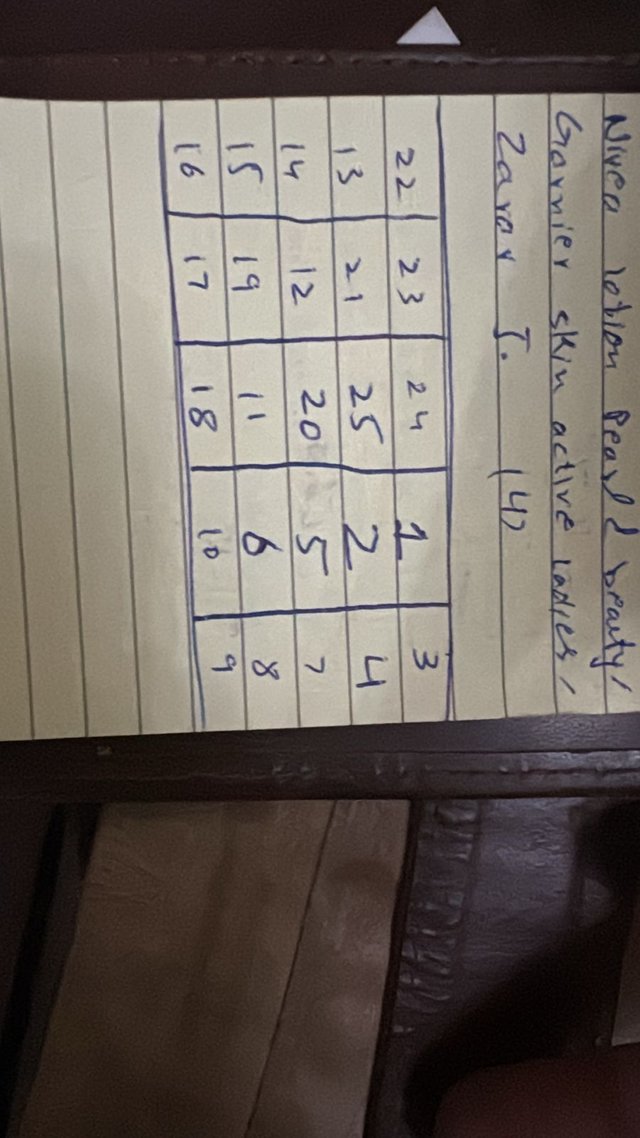 Nivea lotion Pearl & beauty,
Garnier skin active ladies,
Zarar J. (4)
22 23 24 1 3
13 21 25 2 4
14 12 20 5 7
15 19 11 6 8
16 17 18 10 9